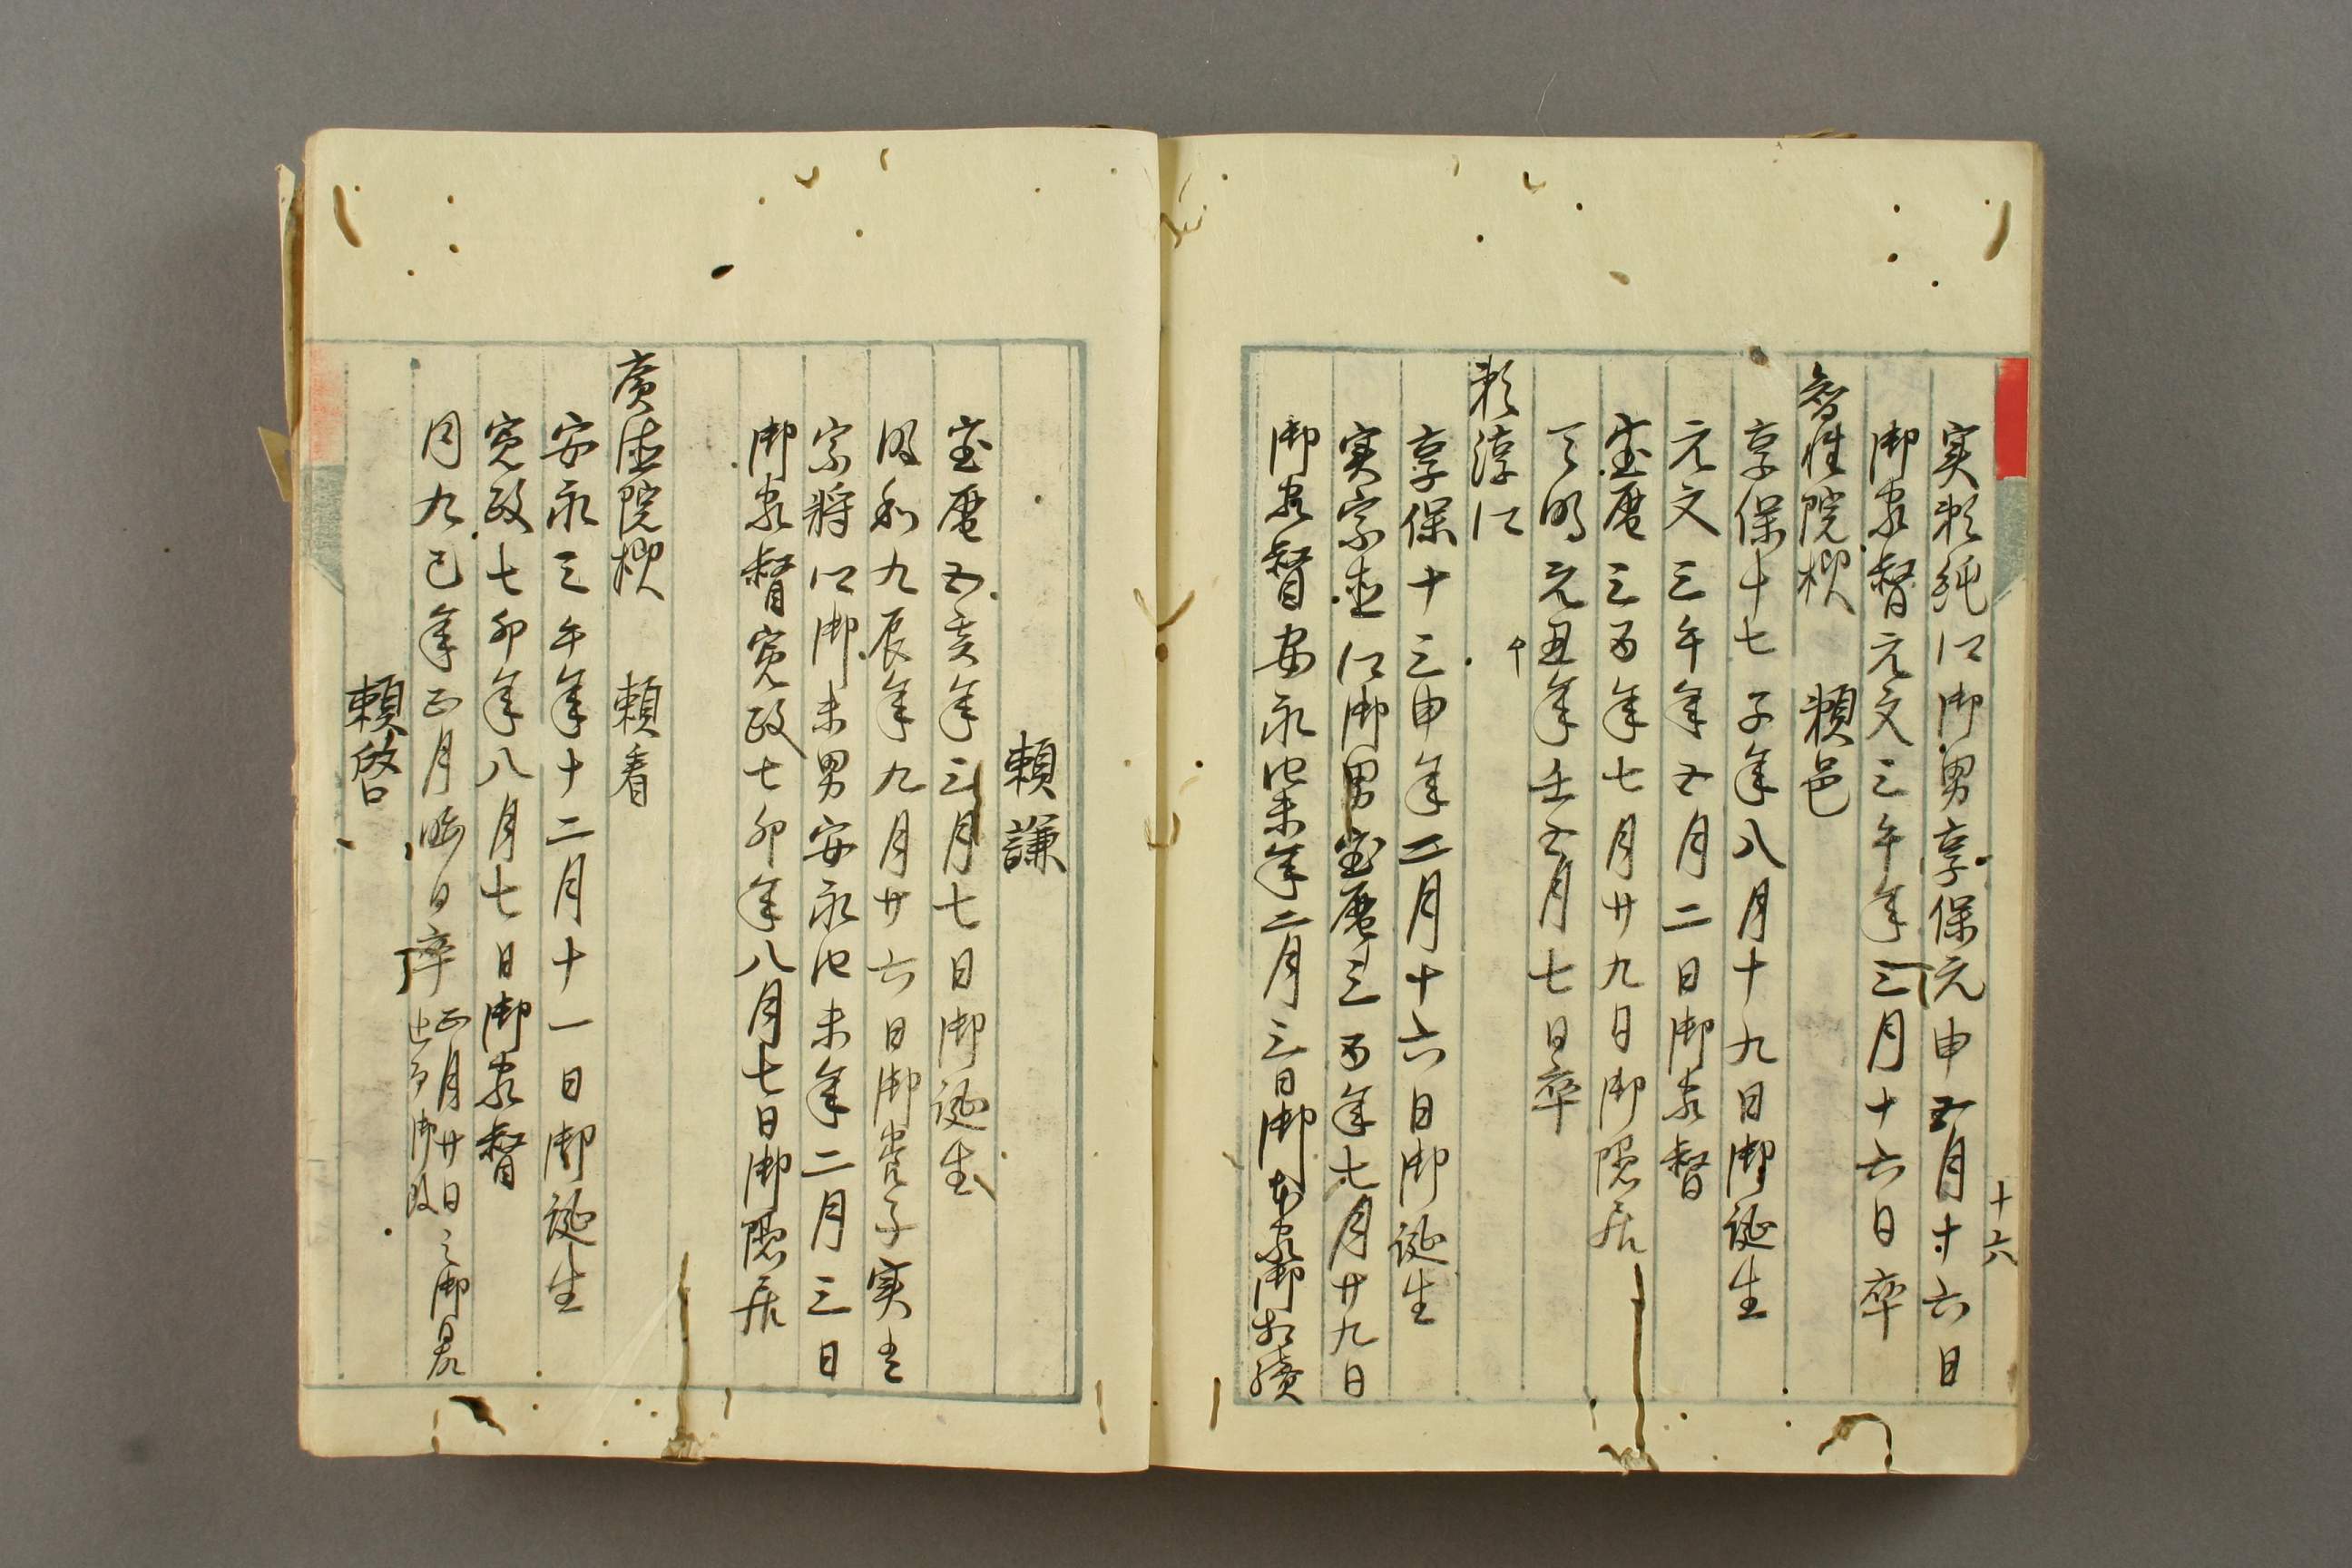 十六
実頼純公御男享保元申五月十六日
御家督元文三午年三月十六日卒
智性院様 頼邑
享保十七子年八月十九日御誕生
元文三午年五月二日御家督
宝暦三酉年七月廿九日御隠居
天明元丑年壬五月七日卒
頼淳公
享保十三申年二月十六日御誕生
実宗直公御男宝暦三酉年七月廿九日
御家督安永四未年二月三日御本家御相続
頼謙
宝暦五亥年三月七日御誕生
明和九辰年九月廿六日御養子実者
宗将公御末男安永四未年二月三日
御家督寛政七卯年八月七日御隠居
廣徳院様 頼看
安永三午年十二月十一日御誕生
寛政七卯年八月七日御家督
同九巳年正月晦日卒 正月廿日之御忌
頼啓